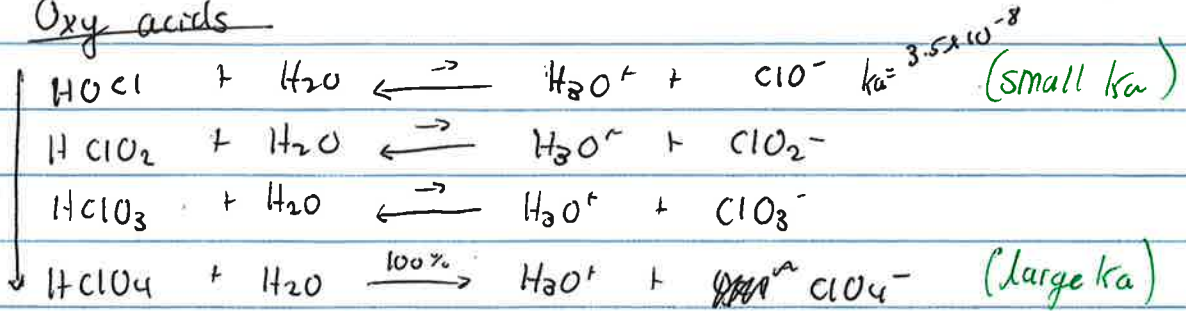 Oxy acids
HOCl + H₂O ⇄ H₃O⁺ + ClO⁻ ka= 3.5x10⁻⁸ (small ka)
HClO₂ + H₂O ⇄ H₃O⁺ + ClO₂-
HClO₃ + H₂O ⇄ H₃O⁺ + ClO₃⁻
HClO₄ + H₂O 100% → H₃O⁺ + ClO₄⁻ (large ka)